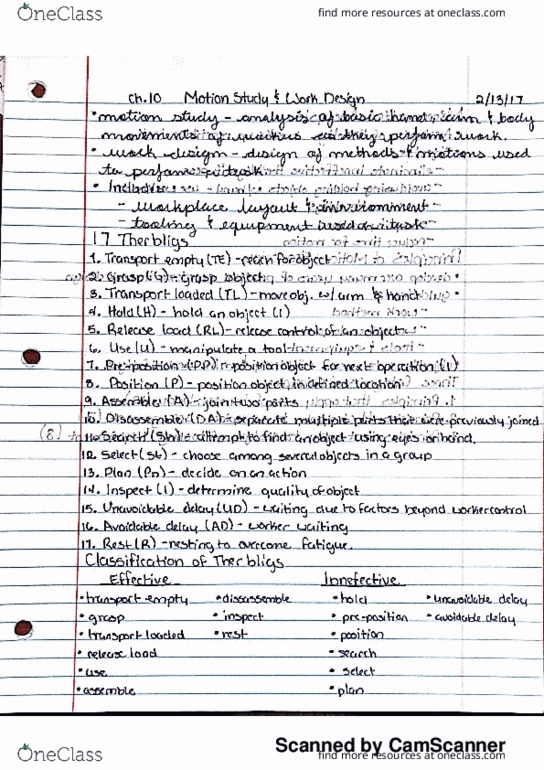 OneClass find more resources at oneclass.com
ch.10 Motion Study & Work Design 2/13/17
• motion study - analysis of basic hand, arm & body
movements of workers as they perform work.
• work design - design of methods & motions used
to perform a task
• Includes:
- workplace layout & environment
- tooling & equipment used in task
17 Therbligs
1. Transport empty (TE) - reach for object
2. Grasp (G) - grasp object
3. Transport loaded (TL) - move obj. w/ arm & hand
4. Hold (H) - hold an object (1)
5. Release load (RL) - release control of an object
6. Use (U) - manipulate a tool
7. Pre-position (PP) - position object for next operation (1)
8. Position (P) - position object in defined location
9. Assemble (A) - join two parts
10. Disassemble (DA) - separate multiple parts that were previously joined
11. Search (Sh) - attempt to find an object using eyes or hand.
12. Select (St) - choose among several objects in a group
13. Plan (Pn) - decide on an action
14. Inspect (I) - determine quality of object
15. Unavoidable delay (UD) - waiting due to factors beyond worker control
16. Avoidable delay (AD) - worker waiting
17. Rest (R) - resting to overcome fatigue.
Classification of Therbligs
Effective Innefective
• transport empty • dissassemble • hold • unavoidable delay
• grasp • inspect • pre-position • avoidable delay
• transport loaded • rest • position
• release load • search
• use • select
• assemble • plan
Scanned by CamScanner
OneClass find more resources at oneclass.com